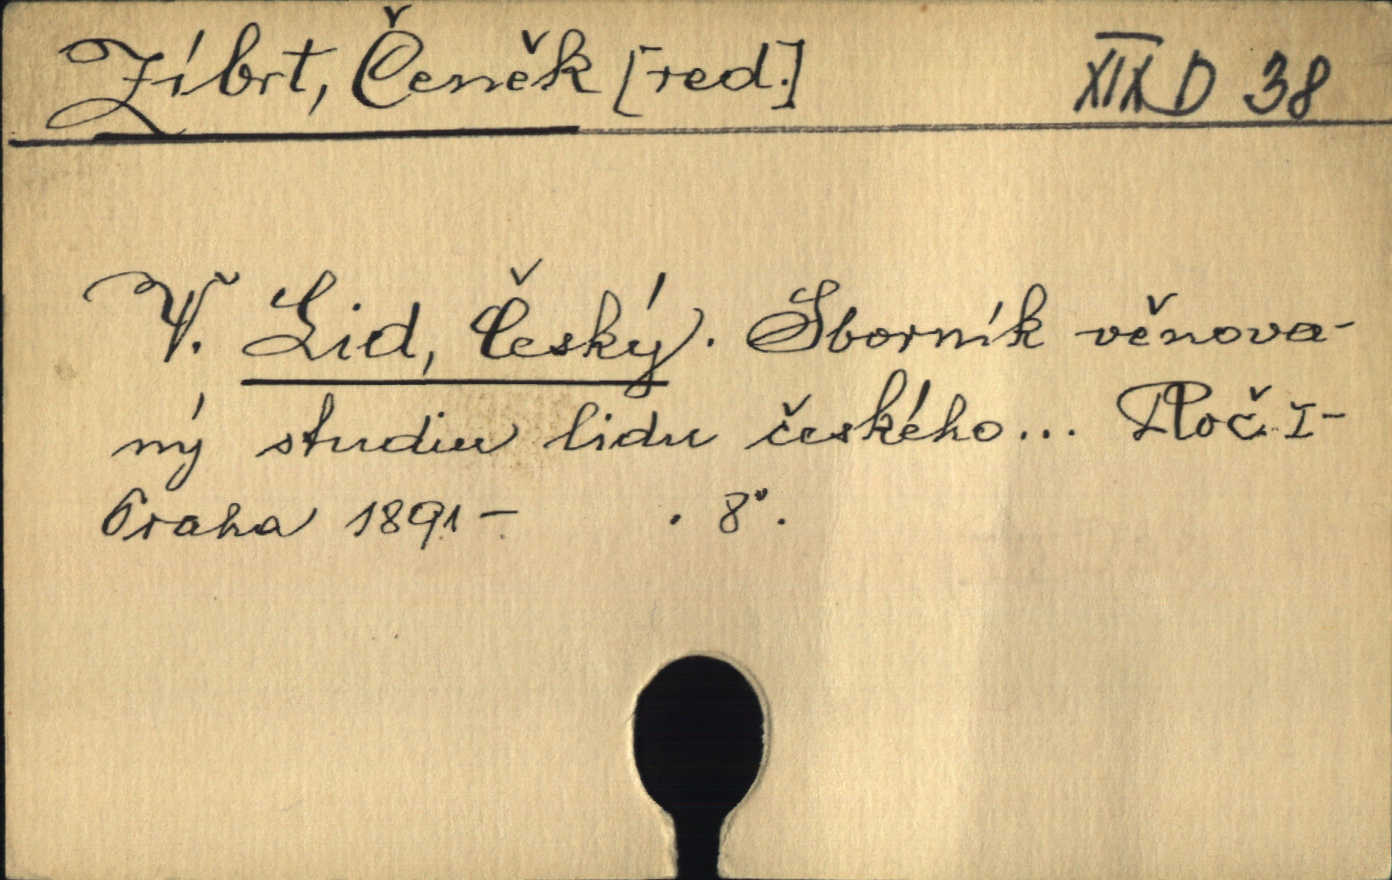 Zíbrt, Čeněk [red.] XIX D 38
V. Lid, Český. Sborník věnova-
ný studiu lidu českého... Roč. I-
Praha 1891- . 8°.